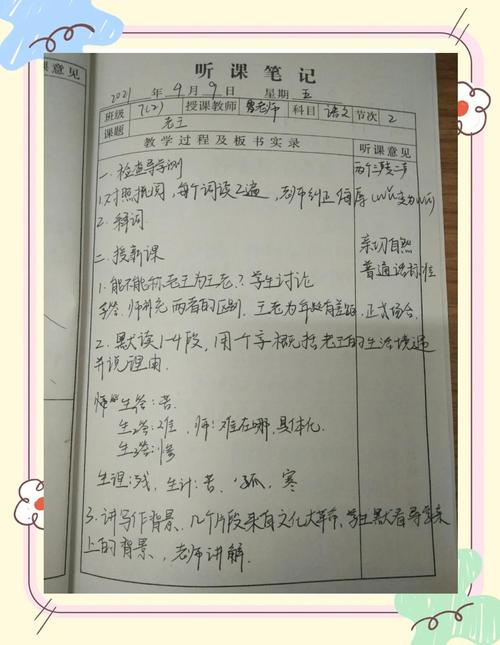 听课笔记
2021 年 4 月 9 日 星期 五
课意见
班级 7(2) 授课教师 老师 科目 语文 节次 2
课题 老王
教学过程及板书实录 听课意见
一、检查导学测
1.对照批阅,每个词读2遍,老师纠正
2.释词
二、授新课 亲切自然
普通话标准
1.能不能称老王为王老?学生讨论
师补充两者的区别,王老为年龄有差距,正式场合。
2.默读1-4段,用一个字概括老王的生活境遇
并说理由。
师 生答:苦
生答:难,师:难在哪,具体化。
生答:惨
生理:残,生计:苦、孤、寒
3.讲写作背景、几个片段来自文化大革命,学生默看导学案
上的背景、老师讲解.